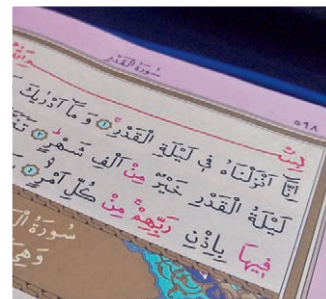 سُورَةُ الْقَدْرِ
٥٩٨
اِنَّٓا اَنْزَلْنَاهُ فٖى لَيْلَةِ الْقَدْرِ ١ وَمَٓا اَدْرٰيكَ
لَيْلَةُ الْقَدْرِ خَيْرٌ مِنْ اَلْفِ شَهْرٍ ٣
فٖيهَا بِاِذْنِ رَبِّهِمْ مِنْ كُلِّ اَمْرٍ ٤
سُورَةُ
وَهِىَ